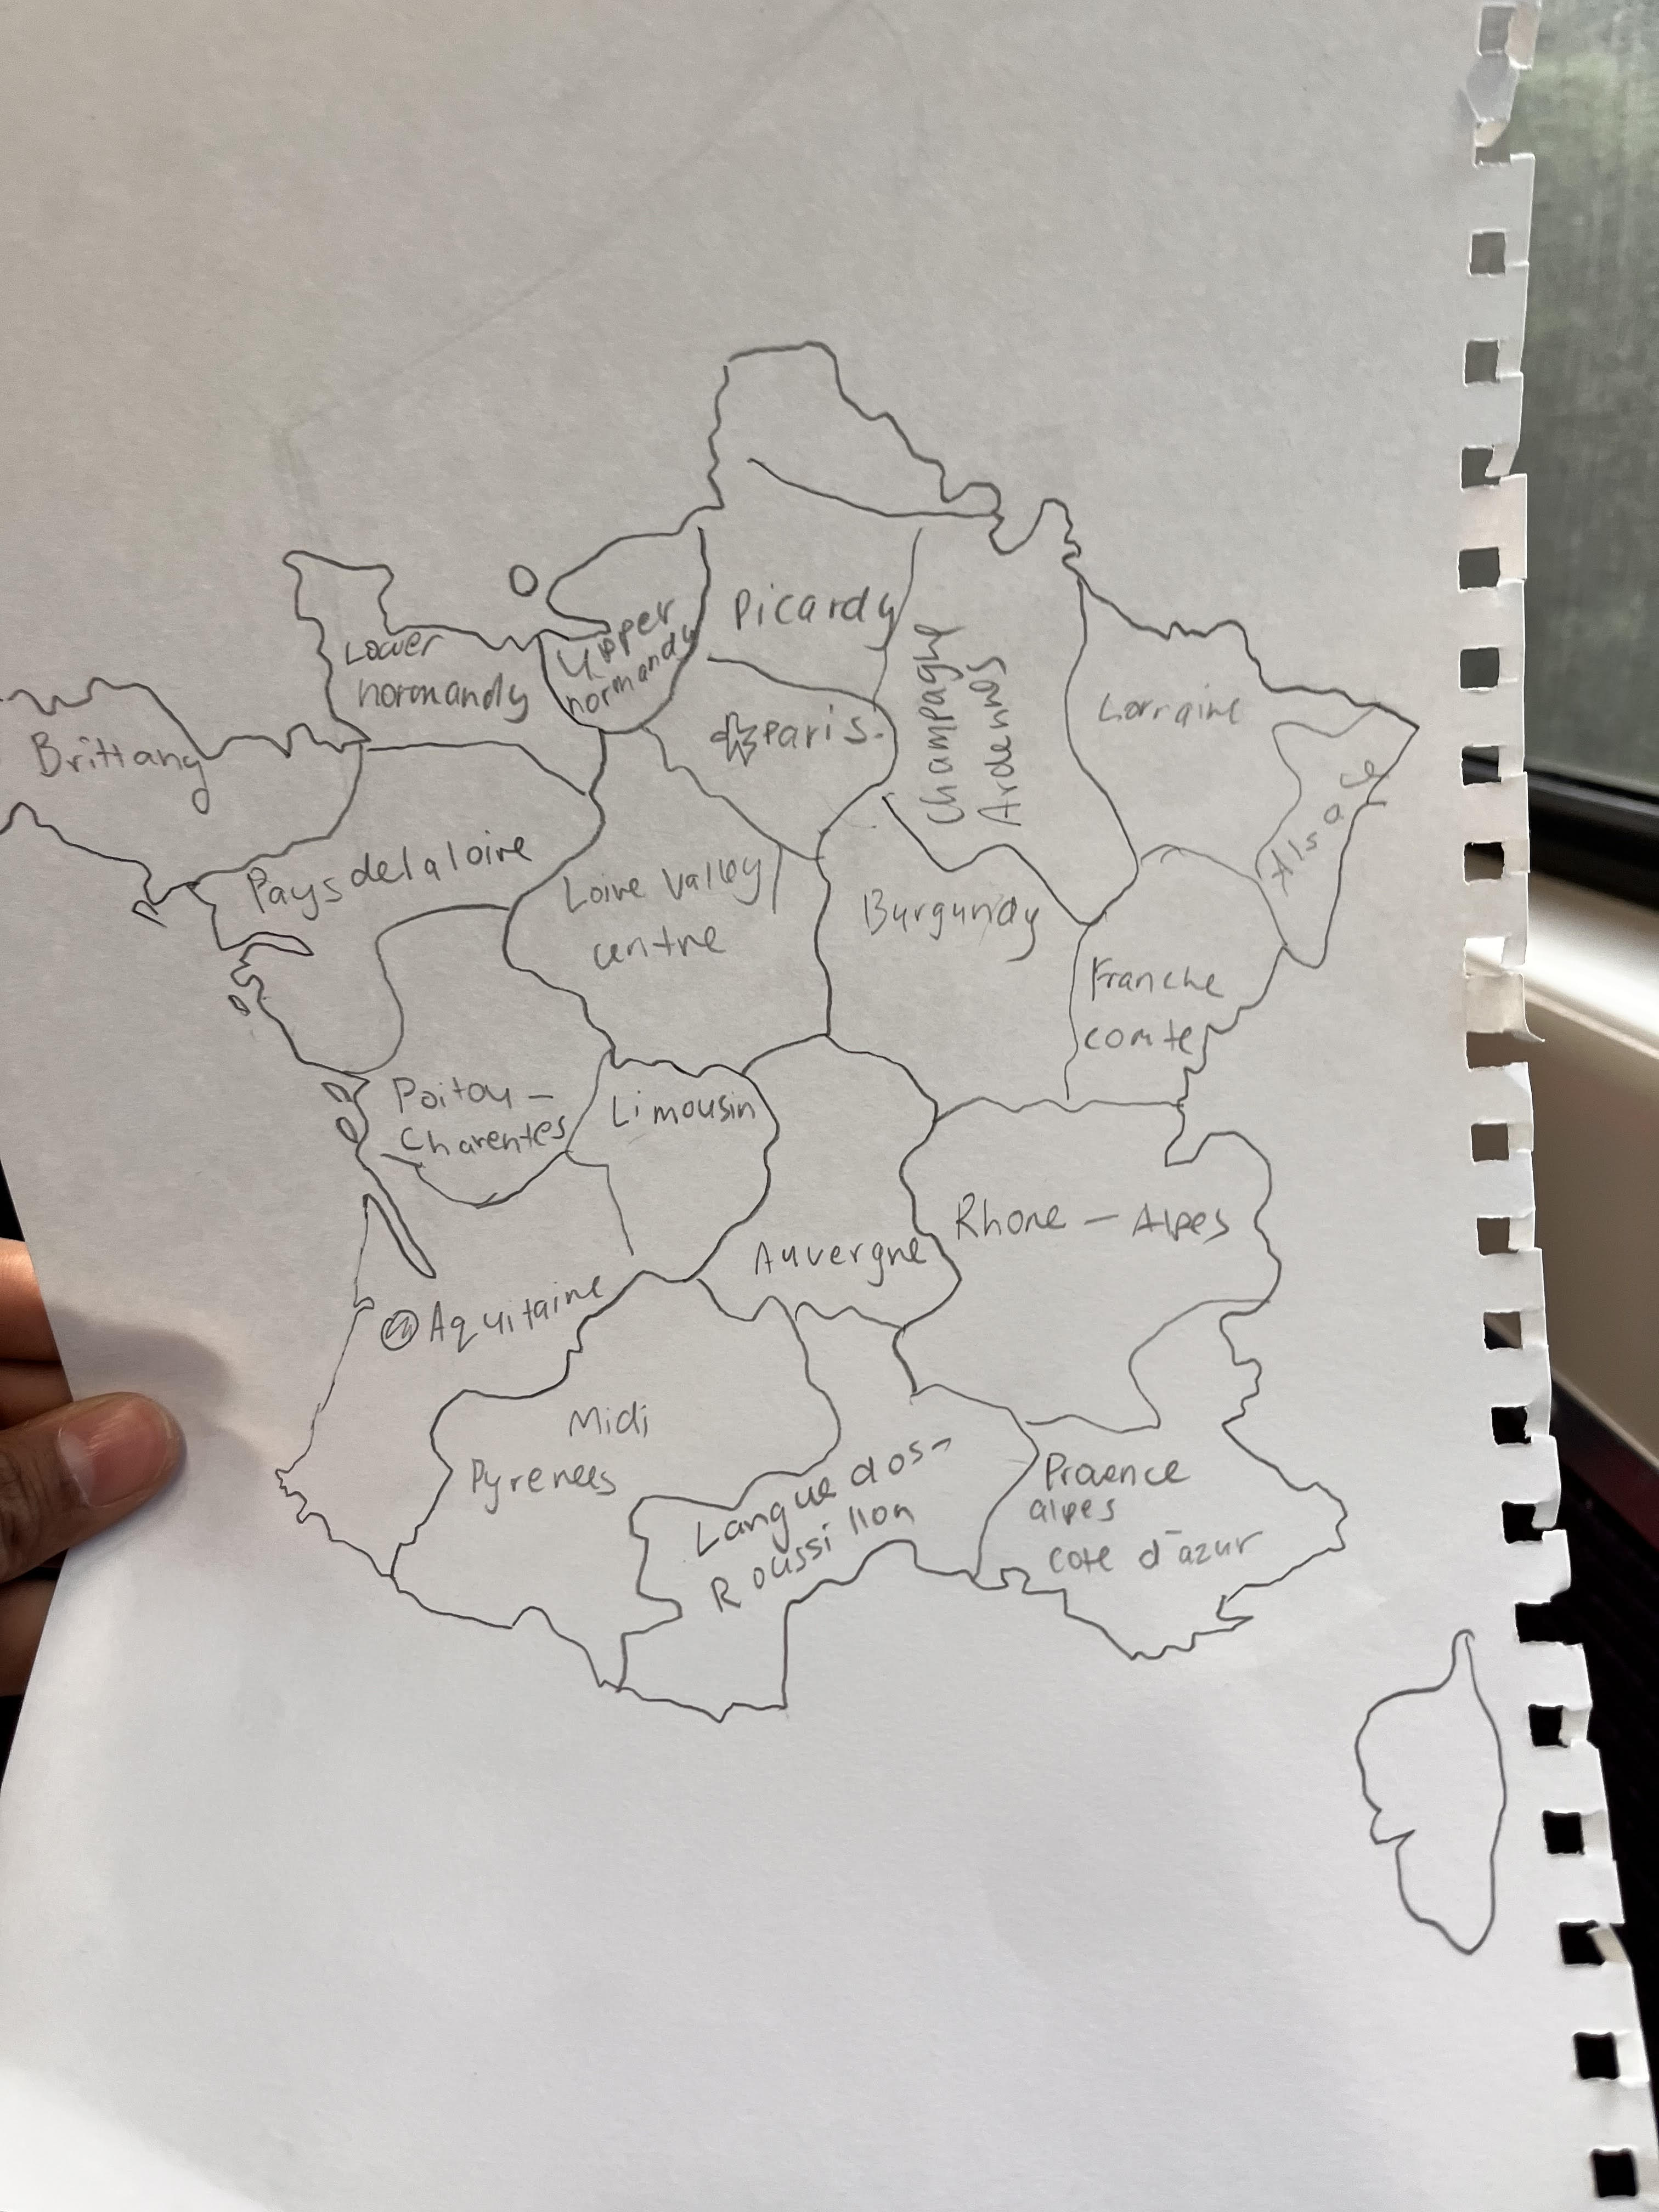 Picardy
Upper
normandy
Lower
normandy
Champagne
Ardennes
Lorraine
paris.
Brittany
Alsace
Pays de la loire
Loire Valley
centre
Burgundy
Franche
comte
Poitou -
Charentes
Limousin
Rhone - Alpes
Auvergne
Aquitaine
Midi
Pyrenees
Langue dos -
Roussillon
Provence
alpes
cote d'azur